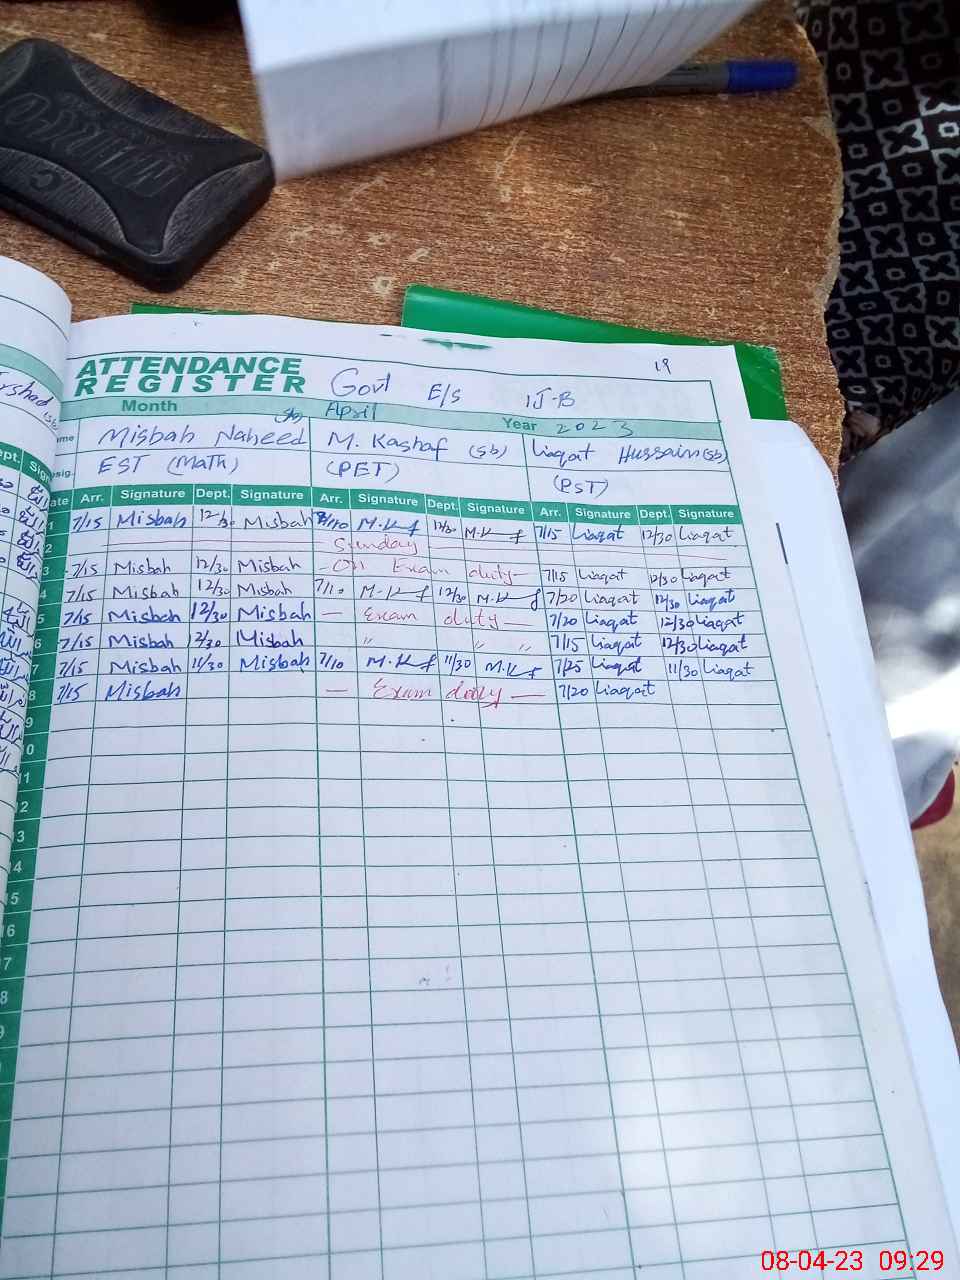 19
ATTENDANCE
REGISTER Govt E/S 1J-B
Month April Year 2023
Misbah Naheed M. Kashaf (sb) Liaqat Hussain (sb)
EST (Math) (PET) (PST)
Arr. Signature Dept. Signature Arr. Signature Dept. Signature Arr. Signature Dept. Signature
1 7/15 Misbah 12/30 Misbah 7/10 M.K 12/30 M.K 7/15 Liaqat 12/30 Liaqat
2 Sunday
3 7/15 Misbah 12/30 Misbah - On Exam duty - 7/15 Liaqat 12/30 Liaqat
4 7/15 Misbah 12/30 Misbah 7/10 M.K 12/30 M.K 7/20 Liaqat 12/30 Liaqat
5 7/15 Misbah 12/30 Misbah — Exam duty — 7/20 Liaqat 12/30 Liaqat
6 7/15 Misbah 12/30 Misbah " " " 7/15 Liaqat 12/30 Liaqat
7 7/15 Misbah 11/30 Misbah 7/10 M.K 11/30 M.K 7/25 Liaqat 11/30 Liaqat
8 7/15 Misbah — Exam duty — 7/20 Liaqat
9
10
11
12
13
14
15
16
17
08-04-23 09:29